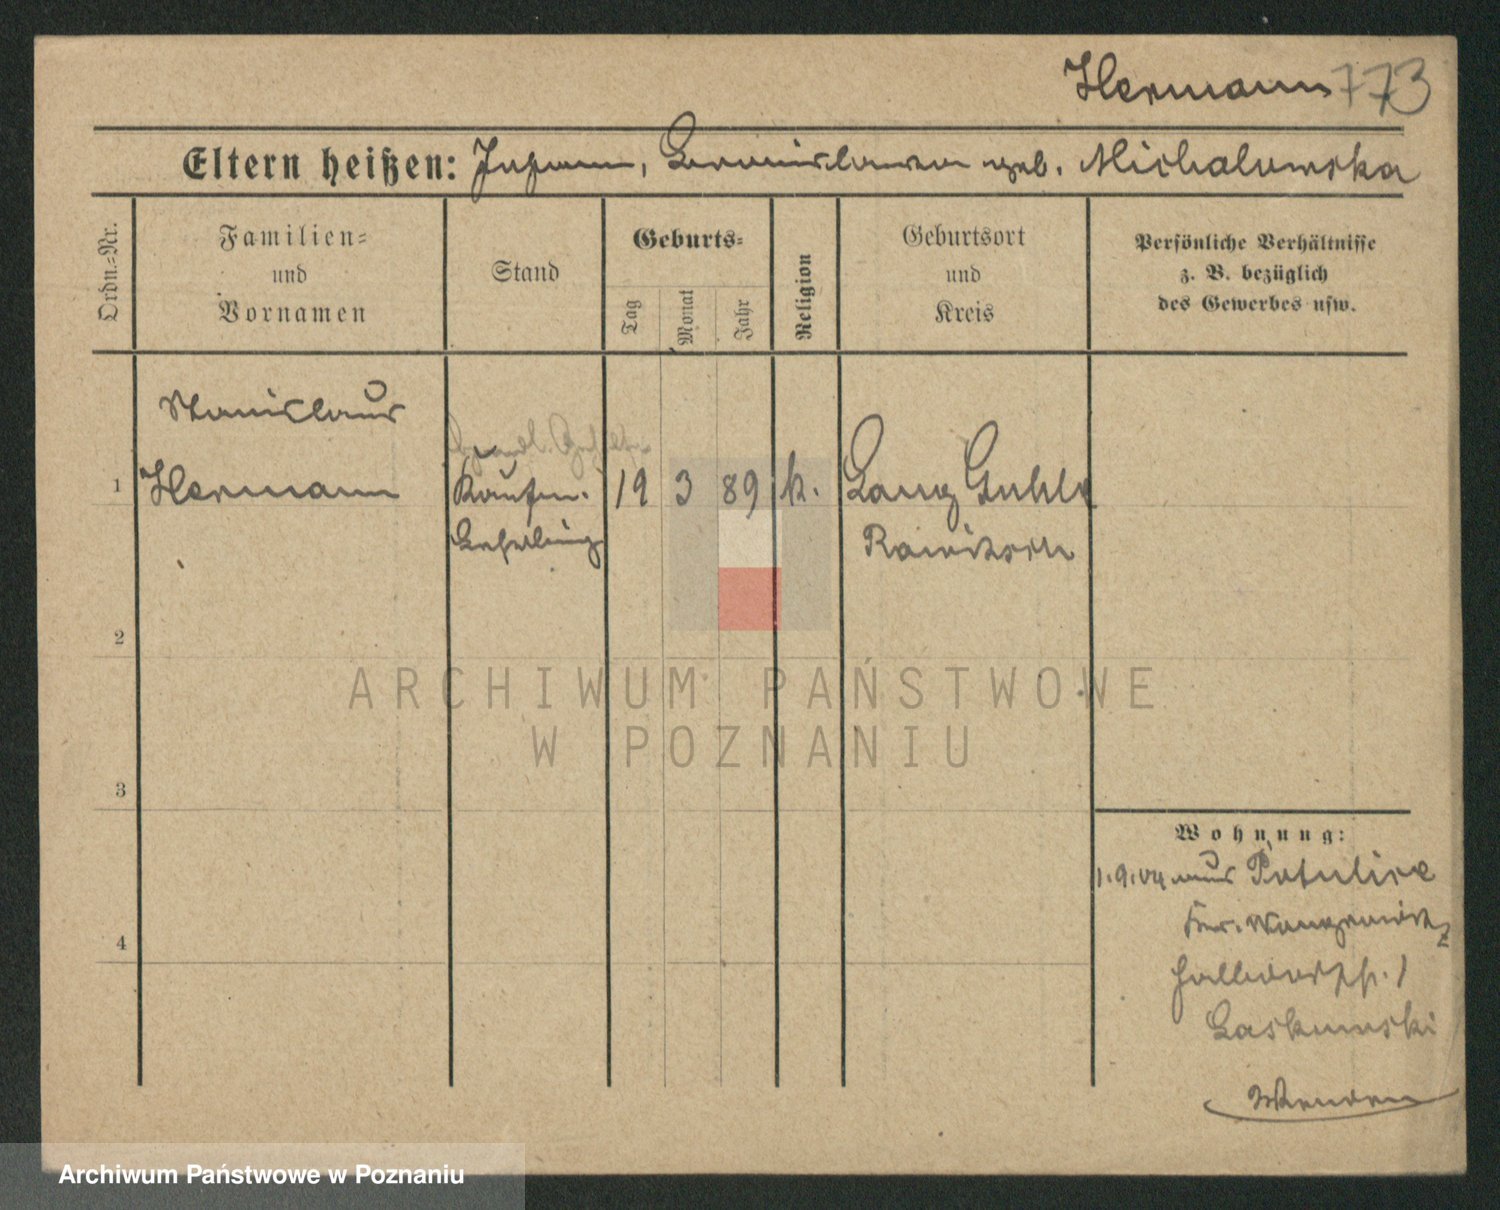 Hermann 773
Eltern heißen: Johann, Bronislawa geb. Michalowska
Ordn.-Nr.
Familien-
und
Vornamen
Stand
Geburts-
Tag
Monat
Jahr
Religion
Geburtsort
und
Kreis
Persönliche Verhältnisse
z. B. bezüglich
des Gewerbes usw.
Stanislaus
1 Hermann Kaufm. 19 3 89 k. Lang Guhle
Lehrling Rawitsch
2
3
4
Wohnung:
1.9.04 aus Potulice
Kr. Wongrowitz
Halbdorfstr. 1
Laskowski
Wenden
ARCHIWUM PAŃSTWOWE
W POZNANIU
Archiwum Państwowe w Poznaniu